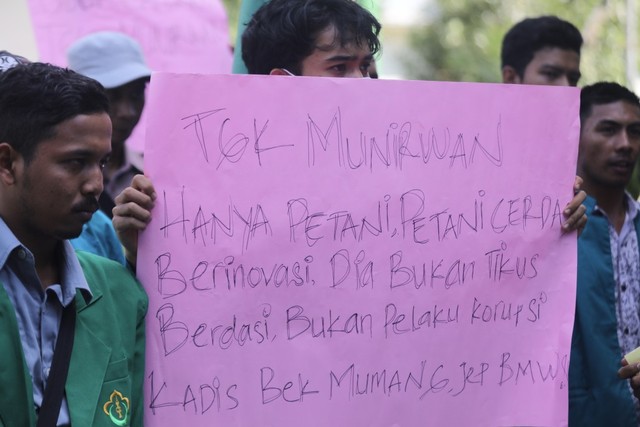 TGK MUNIRWAN
HANYA PETANI, PETANI CERDA
Berinovasi. Dia Bukan Tikus
Berdasi, Bukan Pelaku Korupsi
KADIS Bek MUMANG, jep BMW